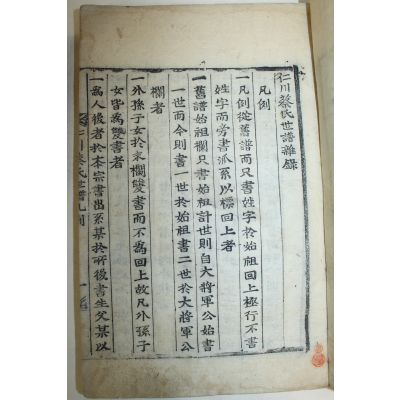 仁川蔡氏世譜雜錄
凡例
一凡例從舊譜而只書姓字於始祖回上極行不書
姓字而旁書派系以標回上者
一舊譜始祖欄只書始祖計世則自大將軍公始書
一世而今則書一世於始祖書二世於大將軍公
欄者
一外孫子女於末欄雙書而不為回上故凡外孫子
女皆為雙書者
一為人後者於本宗書出系某於所後書生父某以
仁川蔡氏世譜凡例
一